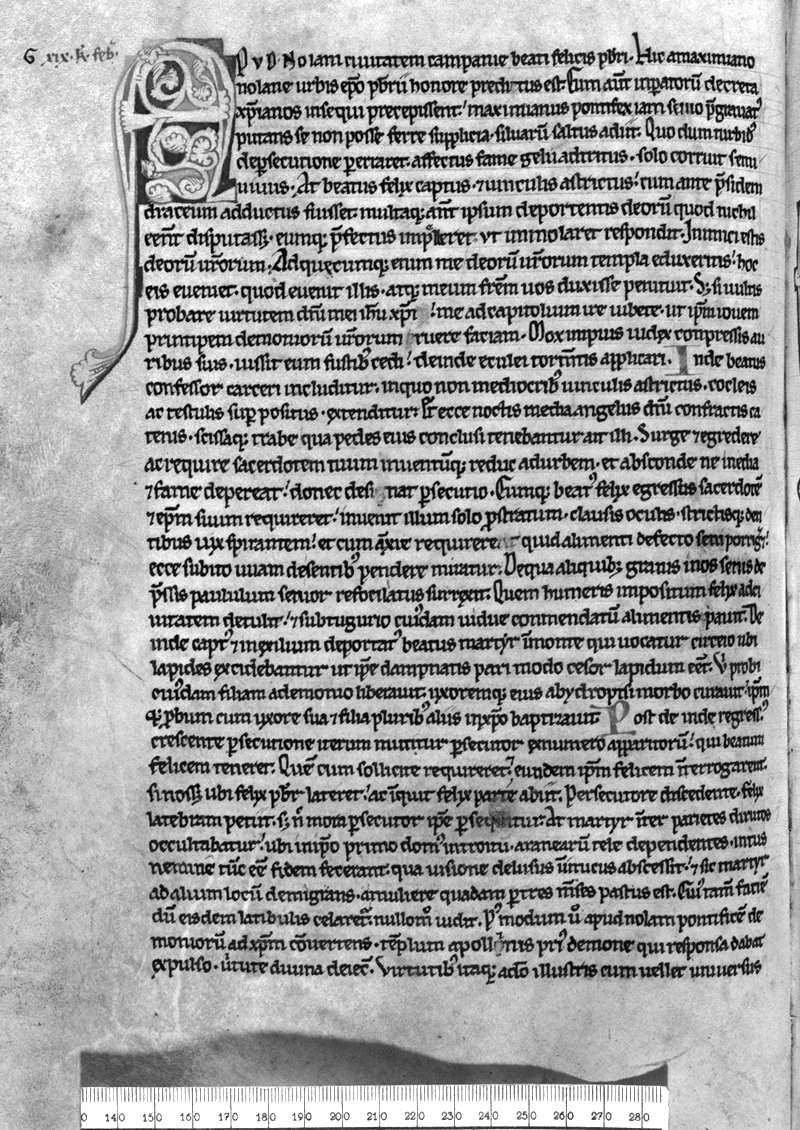 G xix. kł. feb᷑.
Apud Nolam ciuitatem campanie beati felicis pbr̄i. Hic a maximiano
nolane urbis ep̄o pbr̄ii honore preditus est. Cum aūt inꝑatorū decreta
xp̄ianos insequi precepissent. maximianus pontifex iam senio p̄grauat᷒
putans se non posse ferre supplicia. siluarū saltus adiit. Quo dum turbi᷒
de ꝑsecutione ꝑerraret. affectus fame gelu adtritus. solo corruit semi
uiuus. At beatus felix captus. ⁊ uinculis astrictus. cum ante p̄sidem
draceum adductus fuisset. multaq; aūt ipsum deportentis deorū quod nichil
eēnt disputass&. eumq; p̄fectus impelleret ut immolaret respondit. Inimici estis
deorū ur̄orum. Ad quęcumq; enim me deorū ur̄orum templa eduxeritis. hoc
eis eueniet. quod euenit illis. atq; meum fr̄em uos duxisse penituit. S; si uultis
probare uirtutem dn̄i mei ih̄u xp̄i me ad capitolium ire iubete. ut ip̄m iouem
principem demoniorū ur̄orum ruere faciam. Mox impius iudex conpressis au
ribus suis. iussit eum fustib᷒ cedi. deinde eculei torm̄tis applicari. Inde beatus
confessor carceri includitur. in quo non mediocrib᷒ uinculis astrictus. cocleis
ac testulis suꝑ positus. extenditur. Et ecce noctis media angelus dn̄i confractis ca
tenis. scissaq; trabe qua pedes eius conclusi tenebantur ait illi. Surge ⁊ egredere
ac require sacerdotem tuum inuentūq; reduc ad urbem. et absconde ne inedia
⁊ fame depereat. donec desinat ꝑsecutio. Cumq; beat᷒ felix egressus sacerdotē
⁊ ep̄m suum requireret. inuenit illum solo ꝓstratum. clausis oculis. strictisq; den
tibus uix spirantem. et cum anxie requireret quid alimenti defecto seni porrig̅et.
ecce subito uuam desentib᷒ pendere miratur. De qua aliquib; granis in os senis ex
p̄ssis paululum senior refocilatus surrexit. Quem humeris impositum felix ad ci
uitatem detulit. ⁊ subtugurio cuiꝰdam uidue conmendatū alimentis pauit. De
inde capt᷒ ⁊ in exilium deportat᷒ beatus martyr in monte qui uocatur circeio ubi
lapides excidebantur ut ip̄e dampnatis pari modo cesor lapidum eēt. Vbi probi
cuiꝰdam filiam a demonio liberauit. uxoremq; eius ab ydropisi morbo curauit. ip̄m
q; ꝓbum cum uxore sua ⁊ filia plurib᷒ aliis in xp̄o baptizauit. Post de inde regress᷒.
crescente ꝑsecutione iterum mittitur ꝑsecutor ex numero apparitorū. qui beatum
felicem teneret. Quē cum sollicite requireret. eundem ip̄m felicem īterrogarent.
si noss& ubi felix pbr̄ lateret. ac inquit felix parte abiit. Persecutore discedente. felix
latebram petiit. s; n̄ mora ꝑsecutor ip̄e ꝑsequitur. At martyr īter parietes dirutos
occultabatur. ubi in ip̄o primo dom᷒ introitu. aranearū tele dependentes. intus
neminem tūc eē fidem fecerant. qua uisione delusus inimicus abscessit. ⁊ sic martyr
ad alium locū demigrans. a muliere quadam ꝑ tres m̄ses pastus est. Cui᷒ tam̄ faciē
dū eisdem latibulis celaretr̄ nullom̄ uidit. P᷒ modum ū apud nolam pontificē de
moniorū ad xp̄m cōuertens. tēplum apollinis pri᷒ demone qui responsa dabat
expulso. uirtute diuina deiec̄. Virtutib᷒ itaq; adeo illustris cum uellet uniuersus